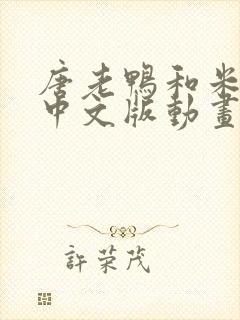 唐老鴨和米
中文版動畫
許荣茂